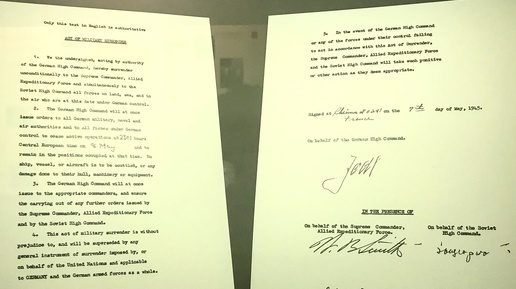 Only this text in English is authoritative
ACT OF MILITARY SURRENDER
1. We the undersigned, acting by authority
of the German High Command, hereby surrender
unconditionally to the Supreme Commander, Allied
Expeditionary Force and simultaneously to the
Soviet High Command all forces on land, sea, and in
the air who are at this date under German control.
2. The German High Command will at once
issue orders to all German military, naval and
air authorities and to all forces under German
control to cease active operations at 2301 hours
Central European time on 8 May and to
remain in the positions occupied at that time. No
ship, vessel, or aircraft is to be scuttled, or any
damage done to their hull, machinery or equipment.
3. The German High Command will at once
issue to the appropriate commanders, and ensure
the carrying out of any further orders issued by
the Supreme Commander, Allied Expeditionary Force
and by the Soviet High Command.
4. This act of military surrender is without
prejudice to, and will be superseded by any
general instrument of surrender imposed by, or
on behalf of the United Nations and applicable
to GERMANY and the German armed forces as a whole.
5. In the event of the German High Command
or any of the forces under their control failing
to act in accordance with this Act of Surrender,
the Supreme Commander, Allied Expeditionary Force
and the Soviet High Command will take such punitive
or other action as they deem appropriate.
Signed at Rheims at 0241 on the 7th day of May, 1945.
France
On behalf of the German High Command.
Jodl
IN THE PRESENCE OF
On behalf of the Supreme Commander,
Allied Expeditionary Force.
On behalf of the Soviet
High Command.
W. B. Smith